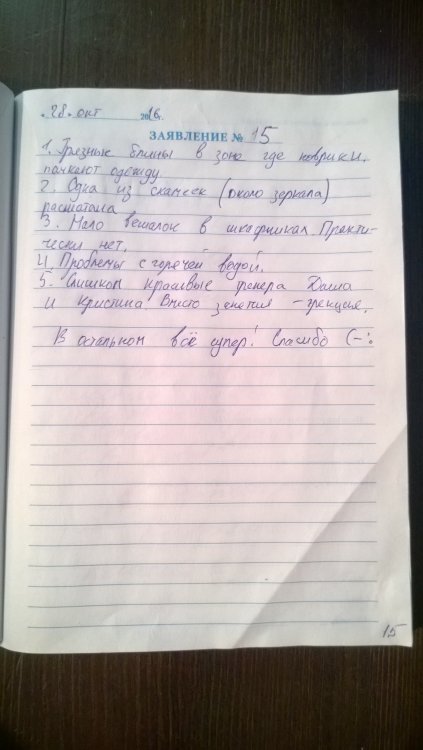 „28„ окт 2016г.
ЗАЯВЛЕНИЕ № 15
1. Грязные блины в зоне где коврики,
пачкают одежду
2. Одна из скамеек (около зеркала)
расшатана
3. Мало вешалок в шкафчиках. Практи-
чески нет.
4. Проблемы с горячей водой.
5. Слишком красивые тренера Даша
и Кристина. Вместо занятия - эрекция.
В остальном всё супер! Спасибо (-:
15